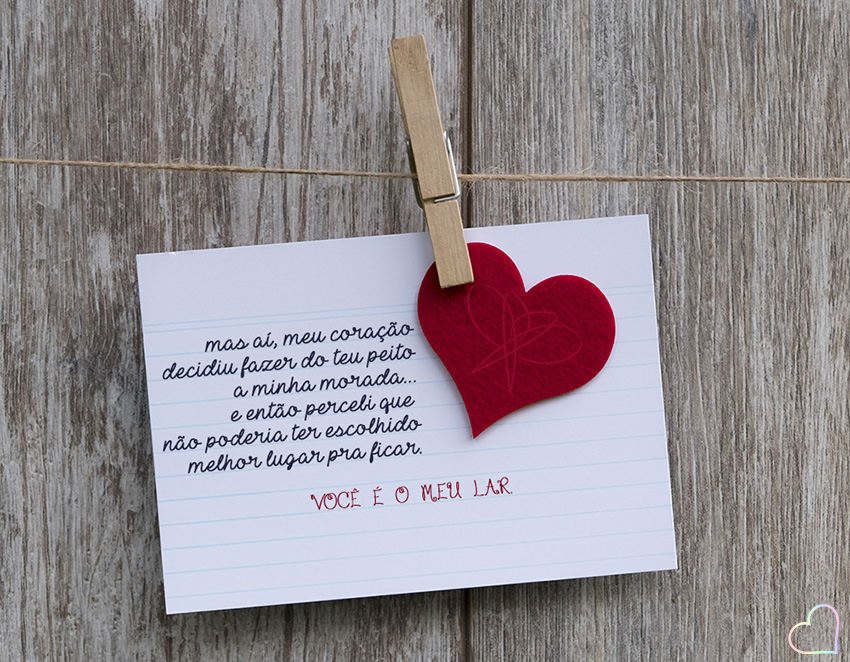 mas aí, meu coração
decidiu fazer do teu peito
a minha morada...
e então percebi que
não poderia ter escolhido
melhor lugar pra ficar.
VOCÊ É O MEU LAR.